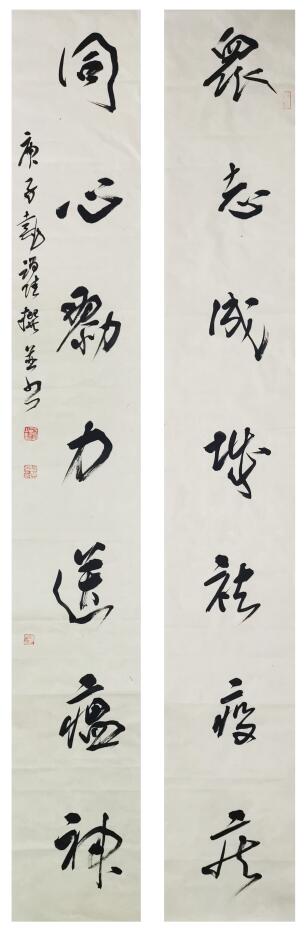 眾志成城祛疫疾
同心勠力送瘟神
庚子
撰并书